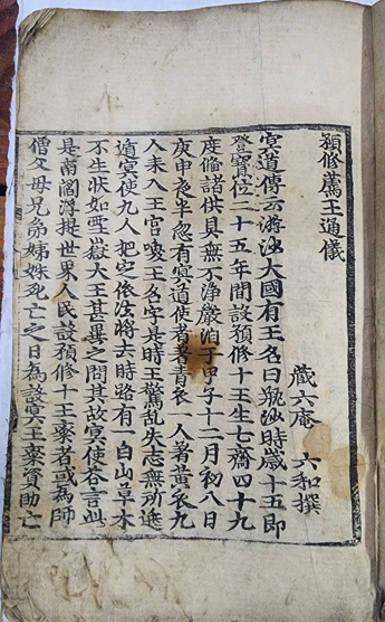 預修薦王通儀
藏六庵 六和撰
冥道傳云游沙大國有王名曰瓶沙時歲十五即
登寶位二十五年間設預修十王生七齋四十九
度備諸供具無不淨嚴洎于甲子十二月初八日
庚申夜半忽有冥道使者著青衣一人著黃衣九
人来入王宮唤王名字是時王驚乱失志無所逃
遁冥使九人把定依法將去時路有一白山草木
不生狀如雪嶽大王甚異之問其故冥使荅言此
是南閻浮提世界人民設預修十王齋者或為師
僧父母兄弟姊妹死亡之日為設冥王齋資助亡